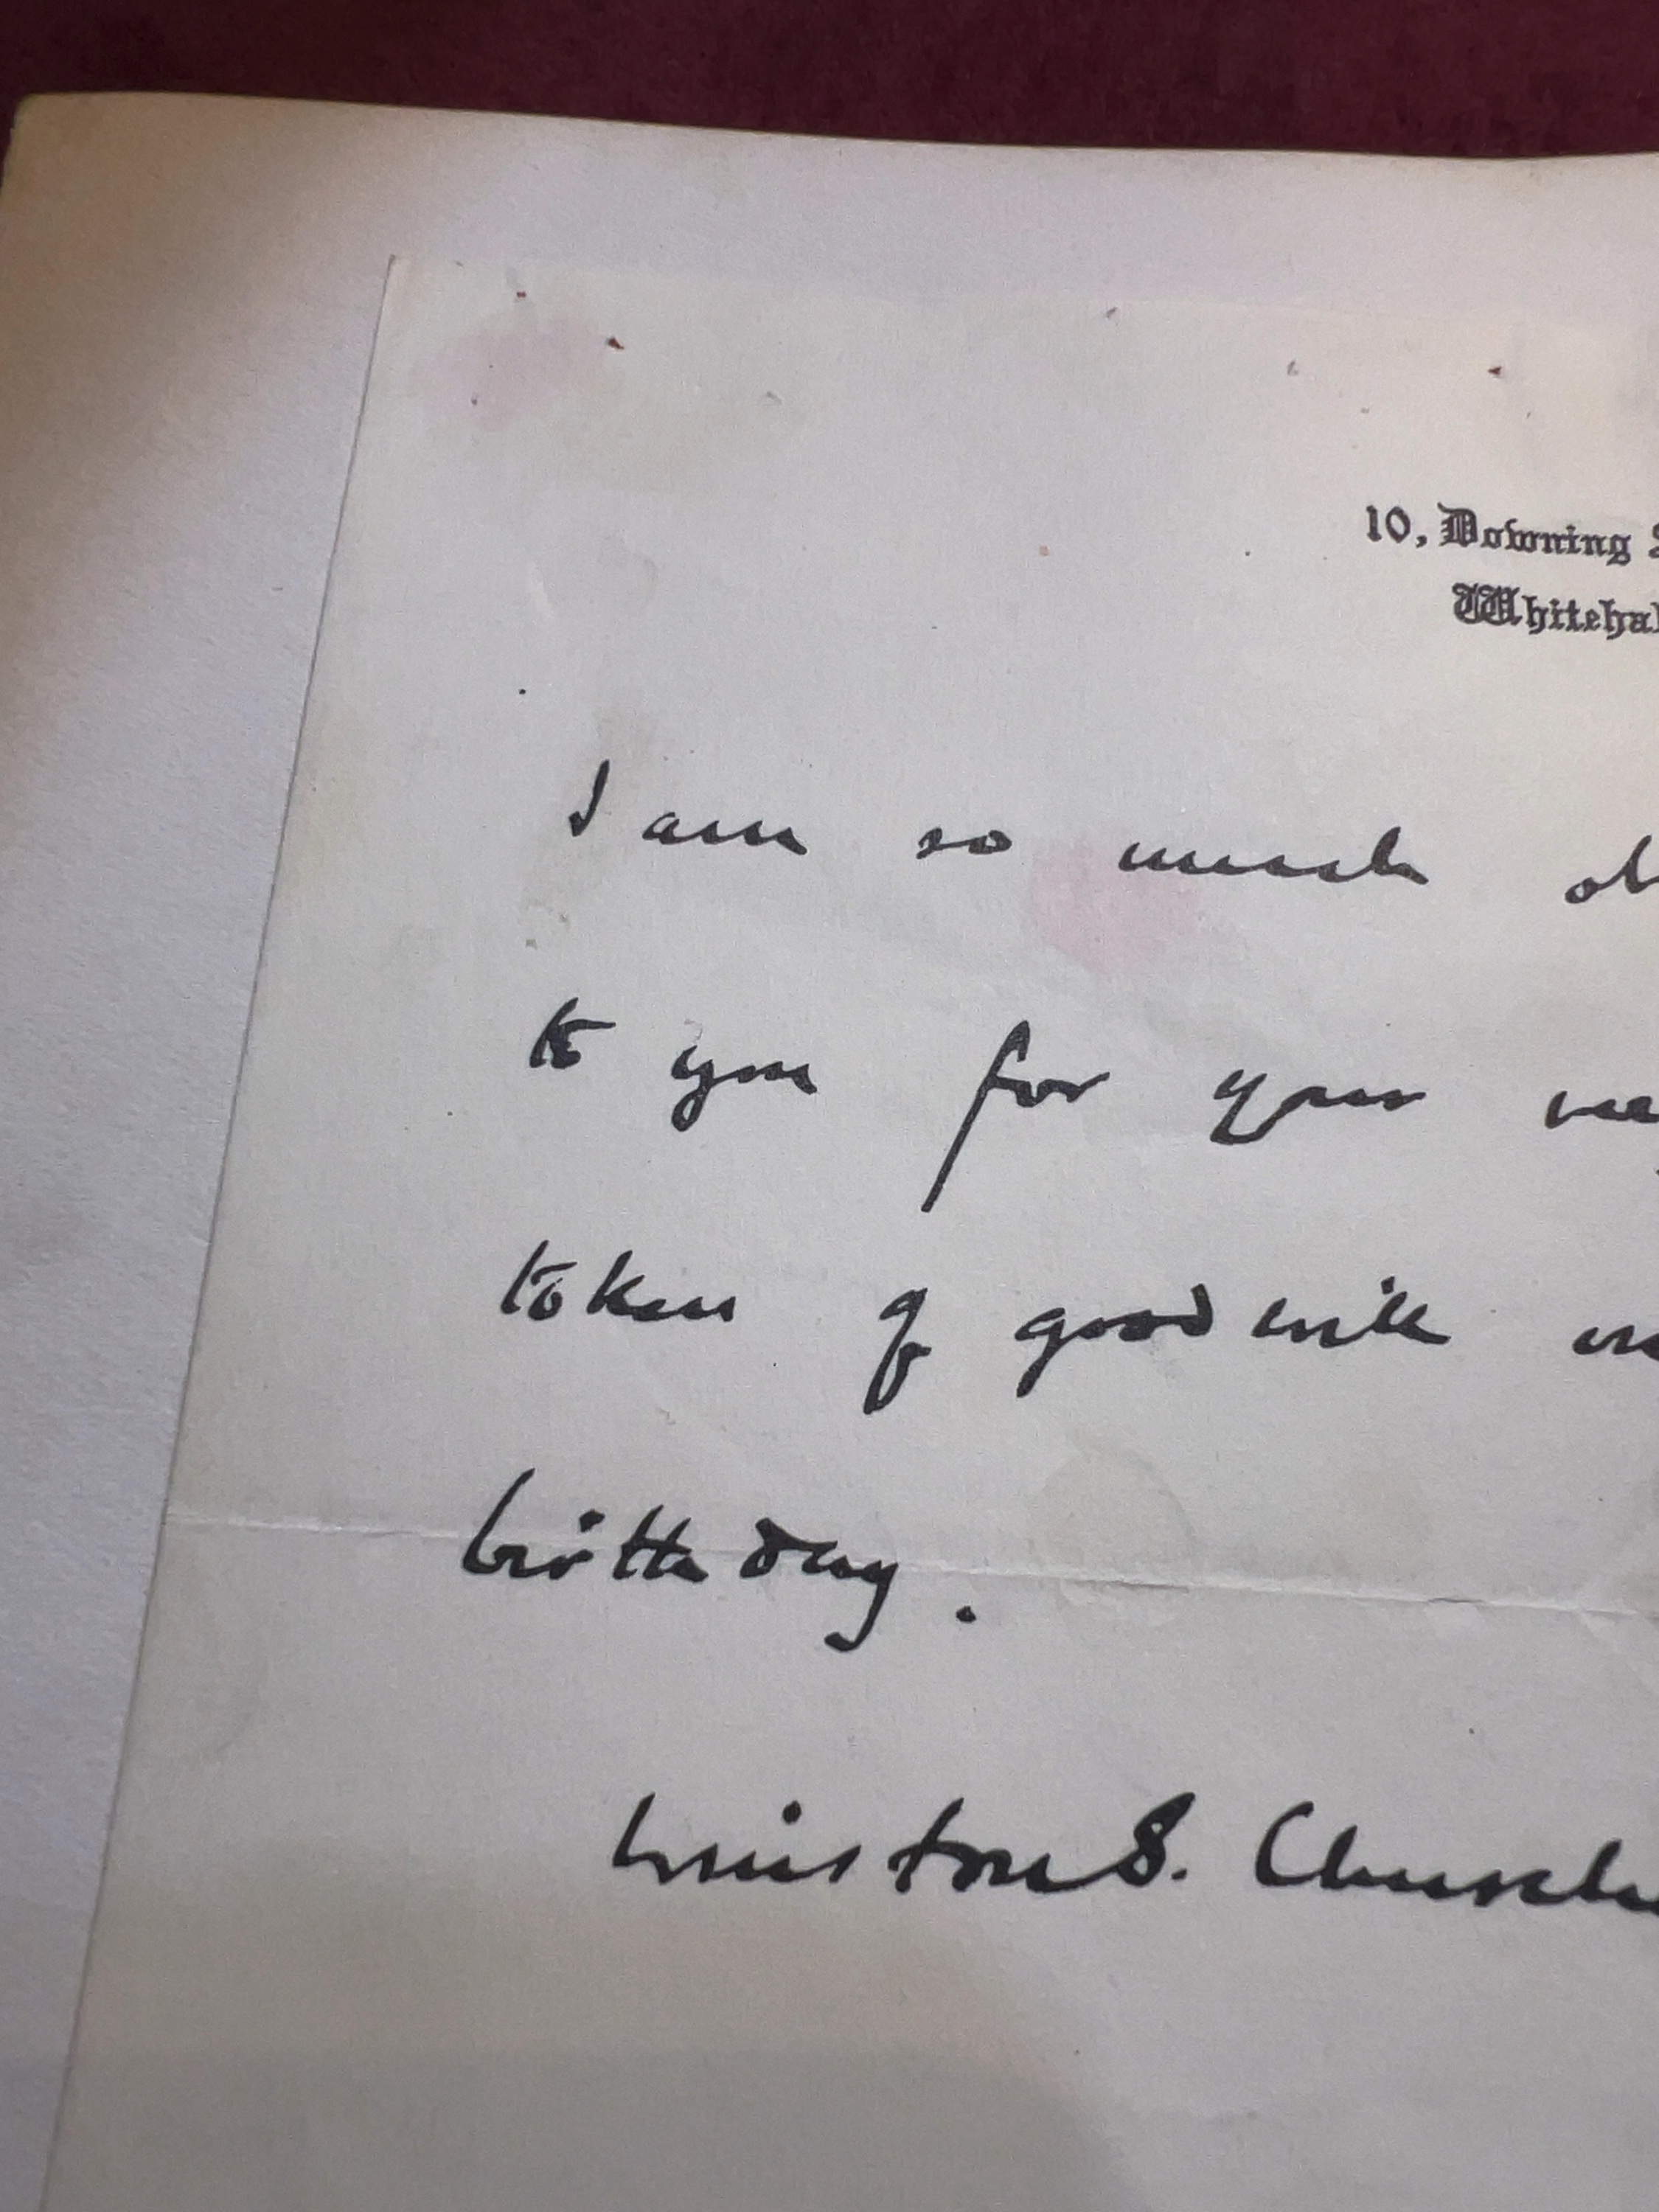 10, Downing S
Whitehal
I am so much ob
to you for your
token of goodwill
birthday.
Winston S. Churchi